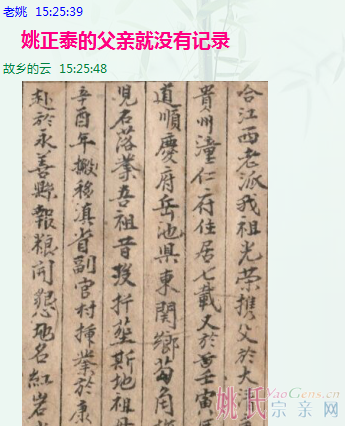 老姚 15:25:39
姚正泰的父亲就没有记录
故乡的云 15:25:48
合江西老派我祖光荣携父於大清
貴州潼仁府住居七載又於壬寅
道順慶府岳池縣東關鄉
兒名落業吾祖昔挨折塋斯地祖
辛酉年搬移滇省副官村插業於康
赴於永善縣報粮開懇地名紅岩
姚氏宗亲网
YaoGens.cn